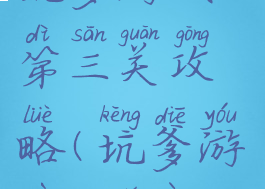 dì sān guān gōng
第三关攻
lüè kēng diē yóu
略(坑爹游